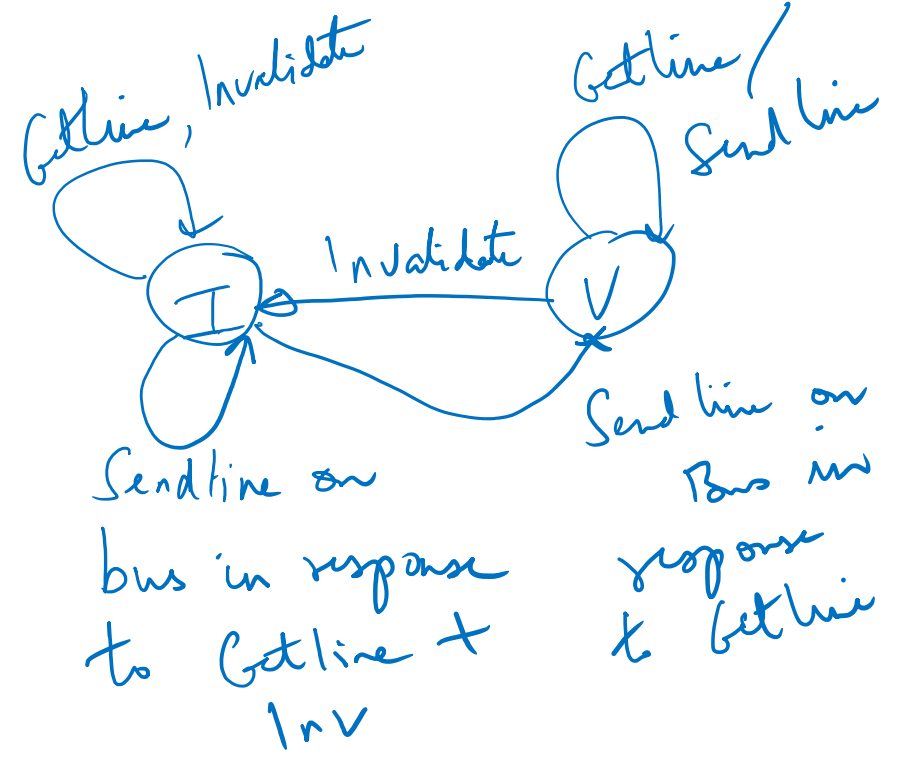 Getline, Invalidate
Getline/
Sendline
Invalidate
I
V
Sendline on
bus in response
to Getline +
Inv
Sendline on
Bus in
response
to Getline